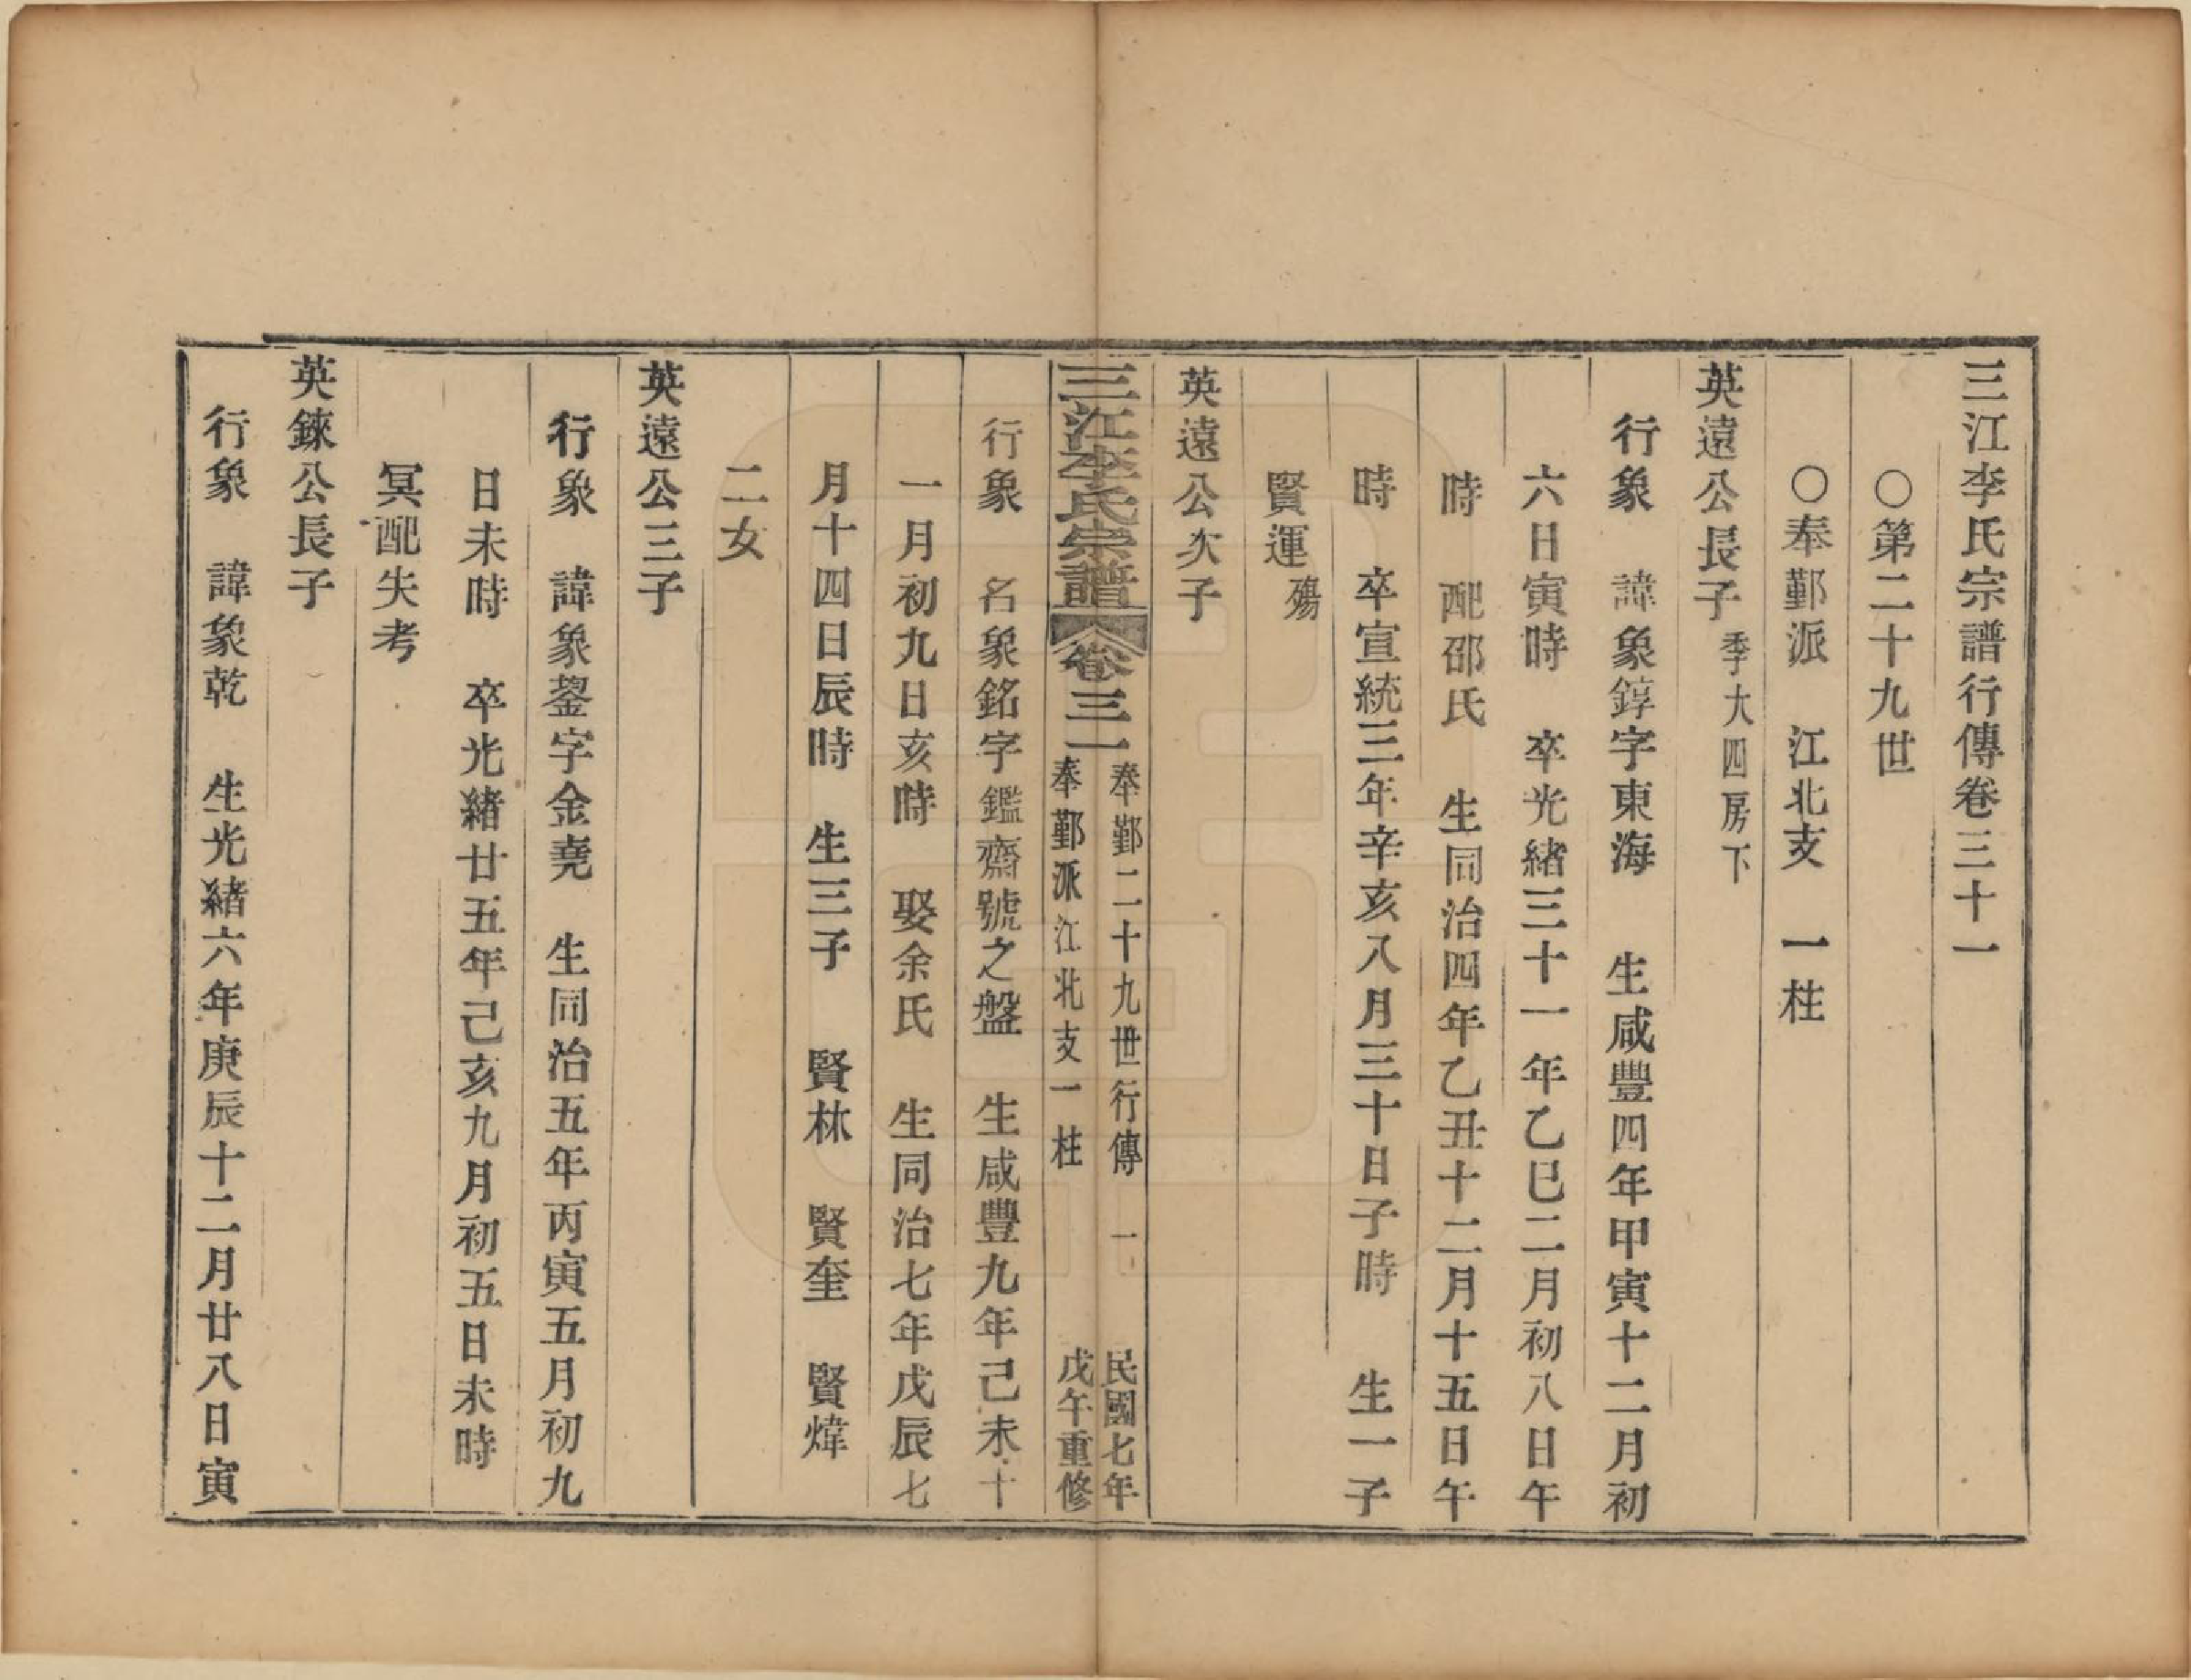 三江李氏宗譜行傳卷三十一
○第二十九世
○奉鄞派　江北支　一柱
英遠公長子季大四房下
行象　諱象錞字東海　生咸豐四年甲寅十二月初
六日寅時　卒光緒三十一年乙巳二月初八日午
時　配邵氏　生同治四年乙丑十二月十五日午
時　卒宣統三年辛亥八月三十日子時　生一子
賢運殤
英遠公次子
三江李氏宗譜　卷三一　奉鄞二十九世行傳　一　民國七年
奉鄞派江北支一柱　戊午重修
行象　名象銘字鑑齋號之盤　生咸豐九年己未十
一月初九日亥時　娶余氏　生同治七年戊辰七
月十四日辰時　生三子　賢林　賢奎　賢煒
二女
英遠公三子
行象　諱象鋆字金堯　生同治五年丙寅五月初九
日未時　卒光緒廿五年己亥九月初五日未時
冥配失考
英錸公長子
行象　諱象乾　生光緒六年庚辰十二月廿八日寅